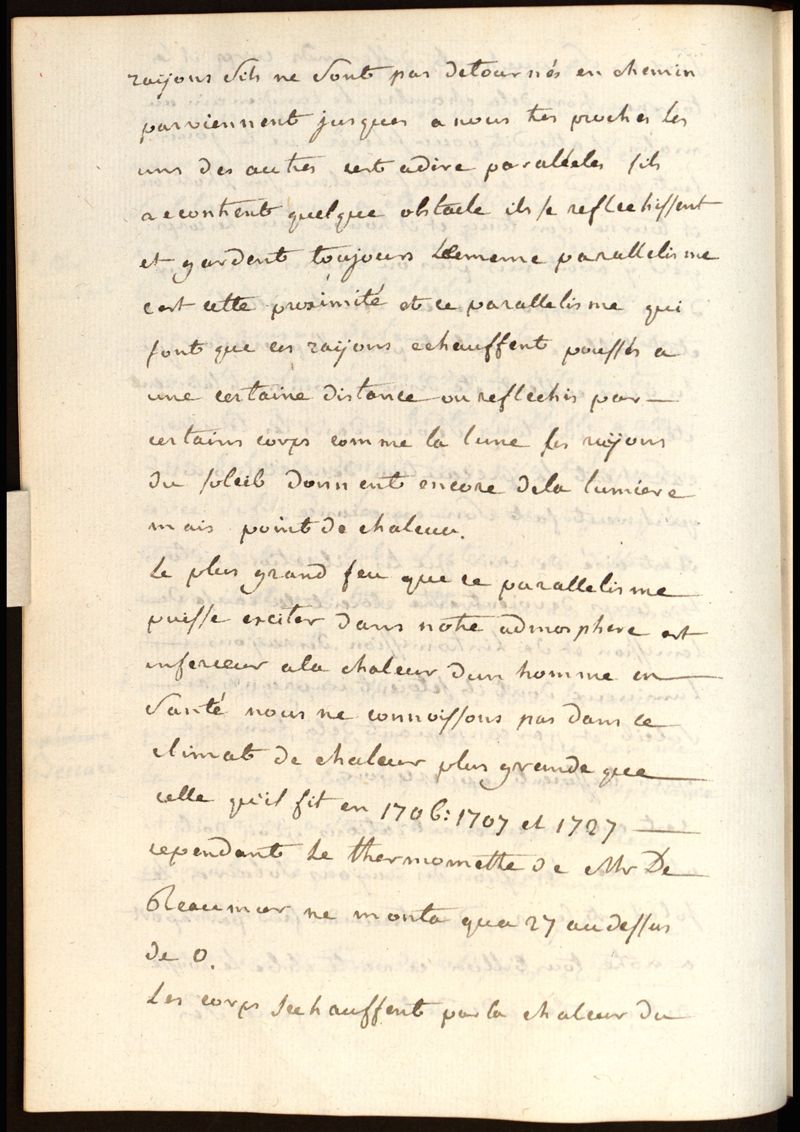 raÿons s'ils ne sont pas detournés en chemin
parviennent jusques a nous tes proches les
uns des autres cest adire paralleles sils
recontrent quelque obstacle ils se reflechissent
et gardent toujours lememe parallelisme
cest cette proximité et ce parallelisme qui
font que ces raÿons echauffent poussés a
une certaine distance ou reflechis par
certains corps comme la lune les raÿons
du soleil donnent encore dela lumiere
mais point de chaleur.
Le plus grand feu que ce parallelisme
puisse exciter dans notre admosphere est
inferieur ala chaleur dun homme en
santé nous ne connoissons pas dans ce
climat de chaleur plus grande que
celle qu'il fit en 1706: 1707 et 1727
cependant le thermomettre de Mr De
Reaumur ne monta qua 27 audessus
de 0.
Les corps sechauffent par la chaleur du